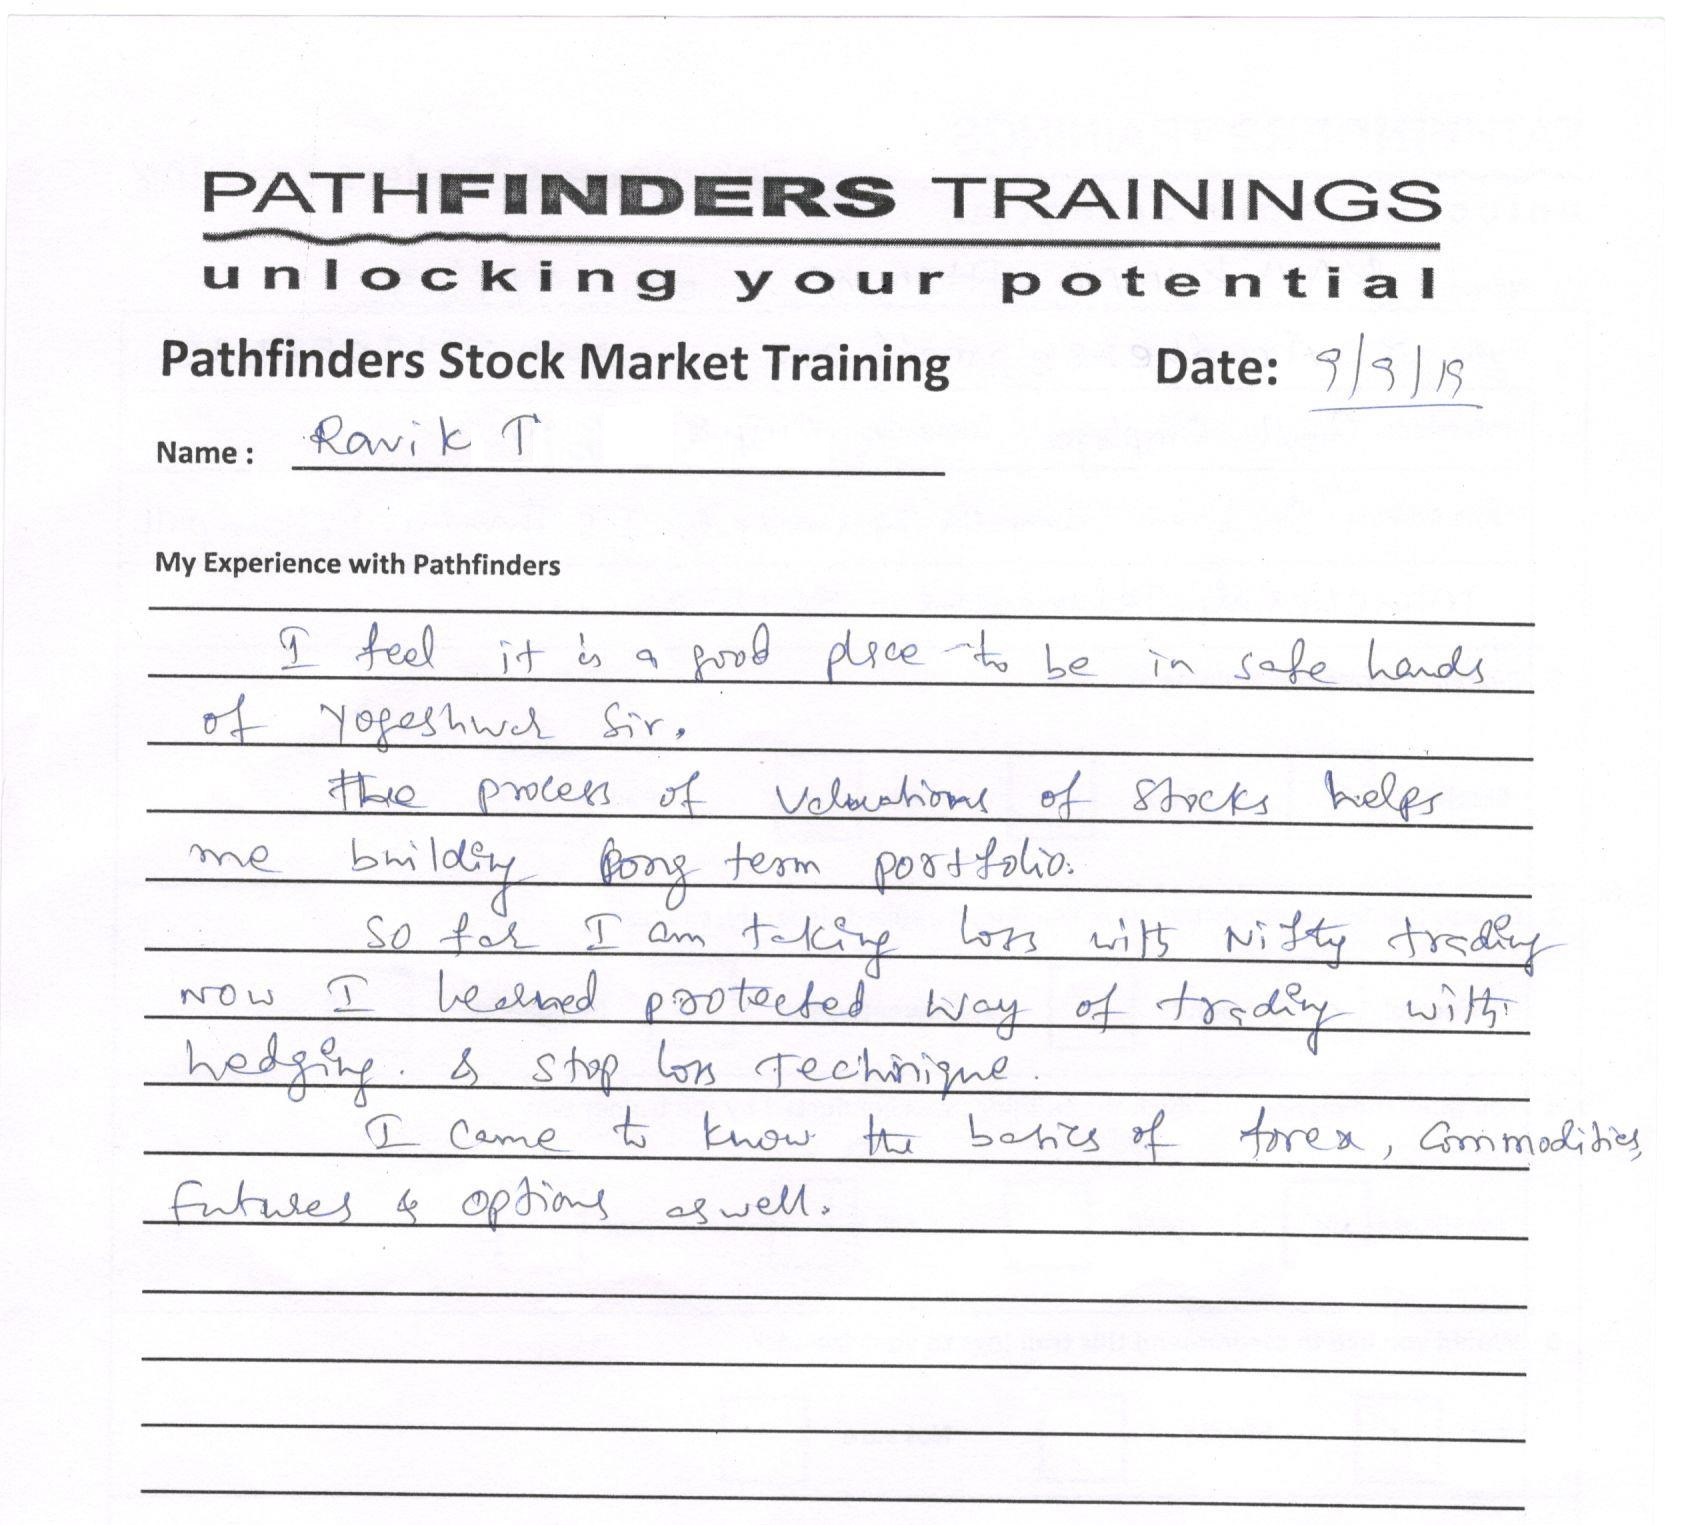 PATHFINDERS TRAININGS
unlocking your potential
Pathfinders Stock Market Training Date: 9/9/19
Name : Ravi k T
My Experience with Pathfinders
I feel it is a good place to be in safe hands
of Yogeshwar Sir.
The process of valuations of stocks helps
me building long term portfolio.
So far I am taking loss with Nifty trading
Now I learned protected way of trading with
hedging. & stop loss Techinique.
I came to know the basics of forex, Commodities,
Futures & options as well.